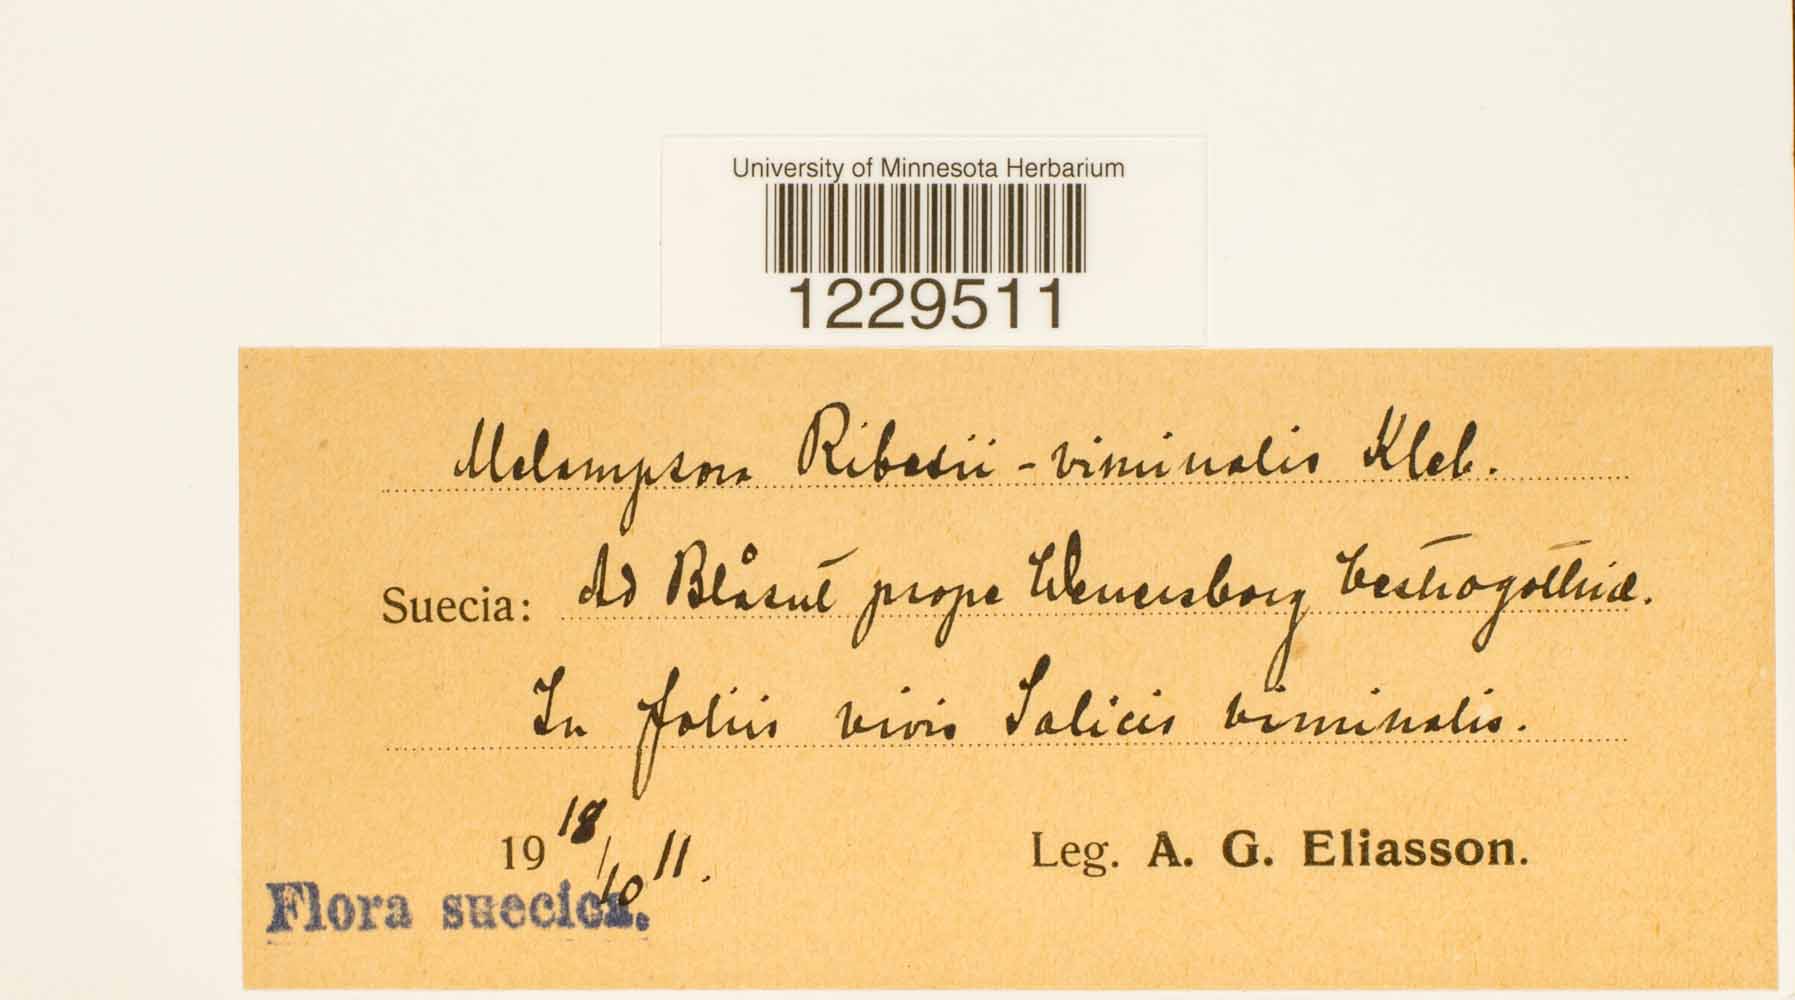 University of Minnesota Herbarium
1229511
Melampsora Ribesii-viminalis Kleb.
Suecia: Ad Blåsut prope Wenersborg Vestrogothiæ.
In foliis vivis Salicis viminalis.
19 18/10 11.
Leg. A. G. Eliasson.
Flora suecica.